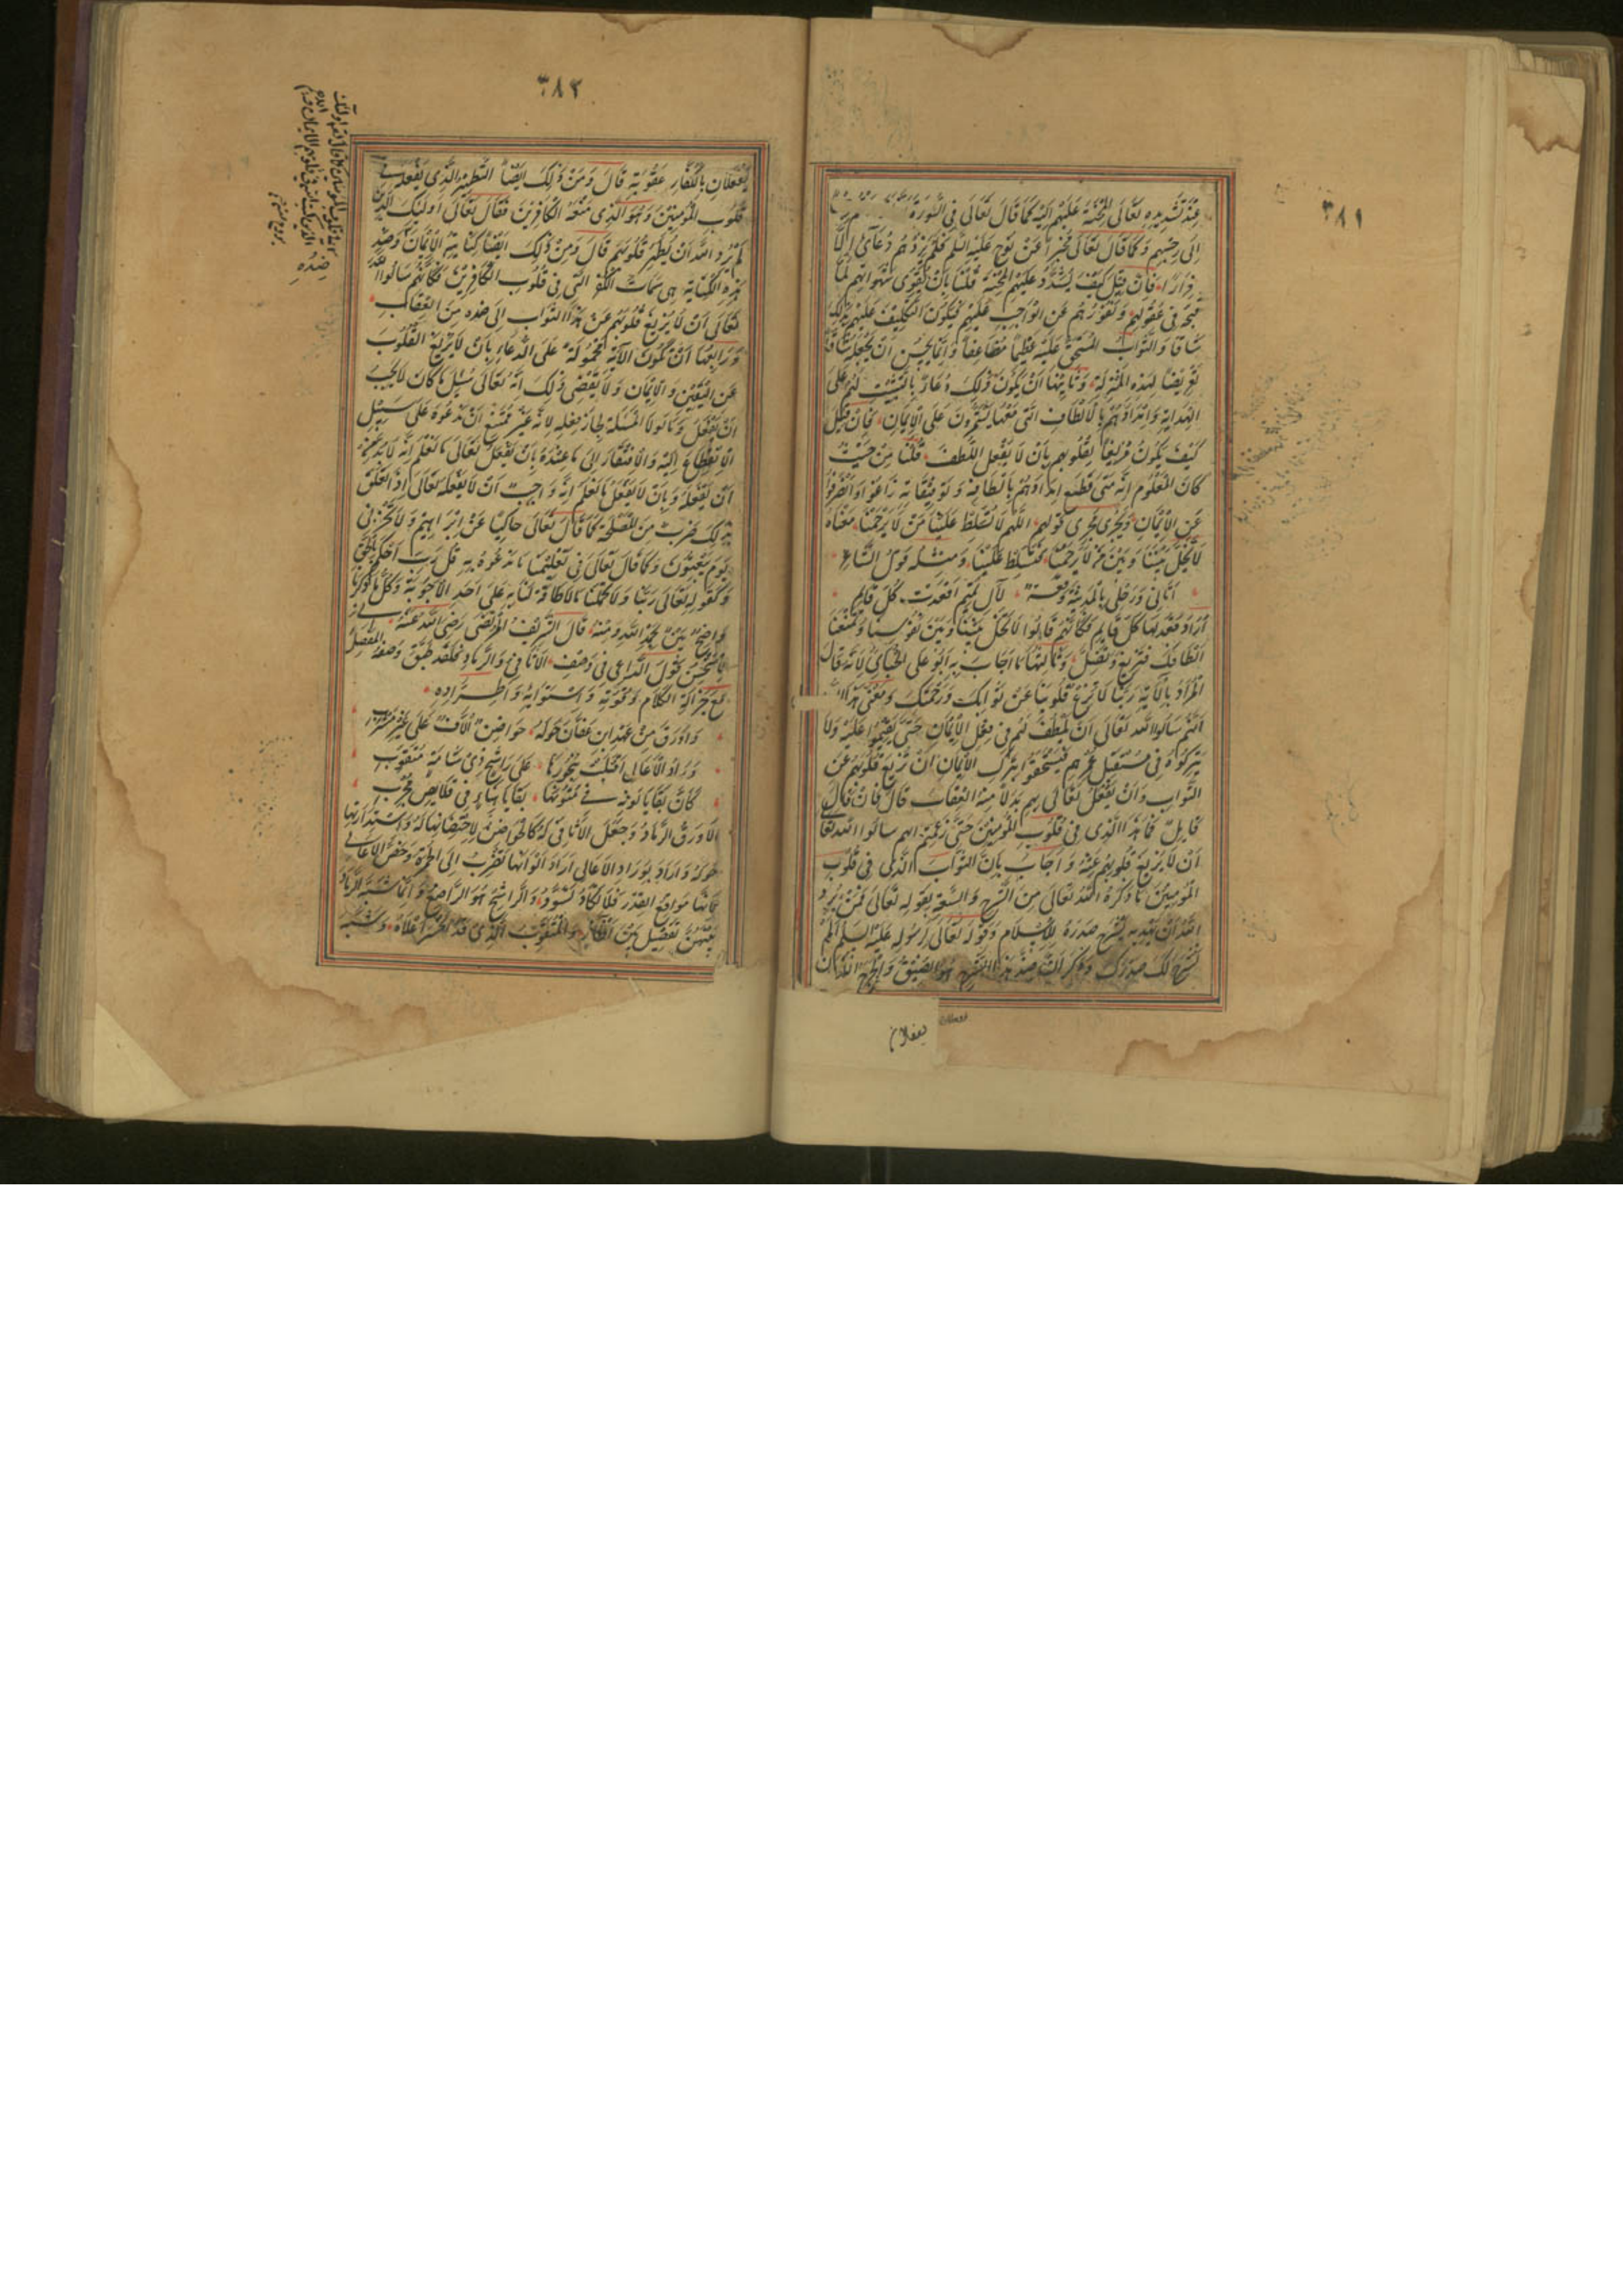 ٣٨١
عِنْدَ تَشْدِيدِهِ تَعَالَى الْمِحْنَةَ عَلَيْهِمْ اِلَيْهِ كَمَا قَالَ تَعَالَى فِى السُّورَةِ
اِلَى رِجْسِهِمْ وَكَمَا قَالَ تَعَالَى مُخْبِرًا عَنْ نُوحٍ عَلَيْهِ السَّلَم فَلَمْ يَزِدْهُمْ دُعَآئِى اِلَّا
فِرَارًا فَاِنْ قِيلَ كَيْفَ يُشَدِّدُ عَلَيْهِمُ الْمِحْنَةَ قُلْنَا بِاَنْ يُقَوِّىَ شَهَوَاتِهِمْ لِمَا
قَبَّحَهُ فِى عُقُولِهِمْ وَنُفُورَهُمْ عَنِ الْوَاجِبِ عَلَيْهِمْ فَيَكُونُ التَّكْلِيفُ عَلَيْهِمْ بِذَلِكَ
شَاقًّا وَالثَّوَابُ الْمُسْتَحَقُّ عَلَيْهِ عَظِيمًا مُضَاعَفًا وَاِنَّمَا يَحْسُنُ اَنْ يَجْعَلَهُ شَاقًّا
تَعْرِيضًا لِهَذِهِ الْمَنْزِلَةِ وَثَانِيهَا اَنْ يَكُونَ ذَلِكَ دُعَاءً بِالتَّثْبِيتِ لَهُمْ عَلَى
الْهِدَايَةِ وَاِمْدَادِهِمْ بِالْاَلْطَافِ الَّتِى مَعَهَا يَسْتَمِرُّونَ عَلَى الْاِيمَانِ فَاِنْ قِيلَ
كَيْفَ يَكُونُ مُزِيغًا لِقُلُوبِهِمْ بِاَنْ لَا يَفْعَلَ اللُّطْفَ قُلْنَا مِنْ حَيْثُ
كَانَ الْمَعْلُومُ اِنَّهُ مَتَى قَطَعَ اِمْدَادَهُمْ بِالْطَافِهِ وَتَوْفِيقَاتِهِ زَاغُوا وَانْصَرَفُوا
عَنِ الْاِيمَانِ وَيَجْرِى مَجْرَى قَوْلِهِمْ اللَّهُمَّ لَا تُسَلِّطْ عَلَيْنَا مَنْ لَا يَرْحَمُنَا مَعْنَاهُ
لَا تُخَلِّ بَيْنَنَا وَبَيْنَ مَنْ لَا يَرْحَمُنَا فَيَتَسَلَّطَ عَلَيْنَا وَمِثْلُهُ قَوْلُ الشَّاعِرِ
اَتَانِى وَرَحْلِى بِالْمَدِينَةِ وَقْعَةٌ لِآلِ تَمِيمٍ اَقْعَدَتْ كُلَّ قَائِمِ
اَرَادَ قَعَدَ لَهَا كُلُّ قَائِمٍ فَكَاَنَّهُمْ قَالُوا لَا تُخَلِّ بَيْنَنَا وَبَيْنَ نُفُوسِنَا وَتَمْنَعَنَا
اَلْطَافَكَ فَنَزِيغَ وَنَضِلَّ وَثَالِثُهَا مَا اَجَابَ بِهِ اَبُو عَلِى الْجُبَّائِىُّ لِاَنَّهُ قَالَ
الْمُرَادُ بِالْآيَةِ رَبَّنَا لَا تُزِغْ قُلُوبَنَا عَنْ ثَوَابِكَ وَرَحْمَتِكَ وَمَعْنَى هَذَا
اَنَّهُمْ سَاَلُوا اللَّهَ تَعَالَى اَنْ يَلْطُفَ لَهُمْ فِى فِعْلِ الْاِيمَانِ حَتَّى يُقِيمُوا عَلَيْهِ وَلَا
يَتْرُكُوهُ فِى مُسْتَقْبَلِ عُمْرِهِمْ فَيَسْتَحِقُّوا بِتَرْكِ الْاِيمَانِ اَنْ تُزِيغَ قُلُوبَهُمْ عَنِ
الثَّوَابِ وَاَنْ يَفْعَلَ تَعَالَى بِهِمْ بَدَلًا مِنْهُ الْعِقَابَ قَالَ فَاِنْ قَالَ
قَايِلٌ فَمَا هَذَا الَّذِى فِى قُلُوبِ الْمُؤْمِنِينَ حَتَّى زَعَمْتُمْ اَنَّهُمْ سَاَلُوا اللَّهَ تَعَالَى
اَنْ لَا يُزِيغَ قُلُوبَهُمْ عَنْهُ وَاَجَابَ بِاَنَّ الثَّوَابَ الَّذِى فِى قُلُوبِ
الْمُؤْمِنِينَ مَا ذَكَرَهُ اللَّهُ تَعَالَى مِنَ الشَّرْحِ وَالسَّعَةِ بِقَوْلِهِ تَعَالَى فَمَنْ يُرِدِ
اللَّهُ اَنْ يَهْدِيَهُ يَشْرَحْ صَدْرَهُ لِلْاِسْلَامِ وَقَوْلِهِ تَعَالَى لِرَسُولِهِ عَلَيْهِ السَّلَم اَلَمْ
نَشْرَحْ لَكَ صَدْرَكَ وَذَكَرَ اَنَّ ضِدَّ هَذَا الشَّرْحِ هُوَ الضِّيقُ وَالْحَرَجُ اللَّذَانِ
يفعلان
٣٨٢
يُفْعَلَانِ بِالْكُفَّارِ عُقُوبَةً قَالَ وَمِنْ ذَلِكَ اَيْضًا التَّطْهِيرُ الَّذِى يَفْعَلُهُ فِى
قُلُوبِ الْمُؤْمِنِينَ وَهُوَ الَّذِى مَنَعَهُ الْكَافِرِينَ فَقَالَ تَعَالَى اُولَئِكَ الَّذِينَ
لَمْ يُرِدِ اللَّهُ اَنْ يُطَهِّرَ قُلُوبَهُمْ قَالَ وَمِنْ ذَلِكَ اَيْضًا كِتَابَتُهُ الْاِيمَانَ وَضِدُّ
هَذِهِ الْكِتَابَةِ هِىَ سِمَاتُ الْكُفْرِ الَّتِى فِى قُلُوبِ الْكَافِرِينَ فَكَاَنَّهُمْ سَاَلُوا اللَّهَ
تَعَالَى اَنْ لَا يُزِيغَ قُلُوبَهُمْ عَنْ هَذَا الثَّوَابِ اِلَى ضِدِّهِ مِنَ الْعِقَابِ
وَرَابِعُهَا اَنْ تَكُونَ الْآيَةُ مَحْمُولَةً عَلَى الدُّعَاءِ بِاَنْ لَا يُزِيغَ الْقُلُوبَ
عَنِ الْيَقِينِ وَالْاِيمَانِ وَلَا يَقْتَضِى ذَلِكَ اَنَّهُ تَعَالَى سُئِلَ مَا كَانَ لَا يَجِبُ
اَنْ يَفْعَلَهُ وَمَا لَوْلَا الْمَسْئَلَةُ لَجَازَ فِعْلُهُ لِاَنَّهُ غَيْرُ مُمْتَنِعٍ اَنْ نَدْعُوَهُ عَلَى سَبِيلِ
الْاِنْقِطَاعِ اِلَيْهِ وَالْاِفْتِقَارِ اِلَى مَا عِنْدَهُ بِاَنْ يَفْعَلَ تَعَالَى مَا نَعْلَمُ اَنَّهُ لَابُدَّ مِنْ
اَنْ يَفْعَلَهُ وَبِاَنْ لَا يَفْعَلَ مَا نَعْلَمُ اِنَّهُ وَاجِبٌ اَنْ لَا يَفْعَلَهُ تَعَالَى اِذَا تَعَلَّقَ
بِذَلِكَ ضَرْبٌ مِنَ الْمَصْلَحَةِ كَمَا قَالَ تَعَالَى حَاكِيًا عَنْ اِبْرَاهِيمَ وَلَا تُخْزِنِى
يَوْمَ يُبْعَثُونَ وَكَمَا قَالَ تَعَالَى فِى تَعْلِيمِنَا مَا نَدْعُوهُ بِهِ قُلْ رَبِّ احْكُمْ بِالْحَقِّ
وَكَقَوْلِهِ تَعَالَى رَبَّنَا وَلَا تُحَمِّلْنَا مَا لَا طَاقَةَ لَنَا بِهِ عَلَى اَحَدِ الْاَجْوِبَةِ وَكُلُّ مَا ذَكَرْنَا
وَاضِحٌ بَيِّنٌ بِحَمْدِ اللَّهِ وَمَنِّهِ قَالَ الشَّرِيفُ الْمُرْتَضَى رَضِىَ اللَّهُ عَنْهُ اِنِّى
لَاَسْتَحْسِنُ قَوْلَ الرَّاعِى فِى وَصْفِ الْاَثَافِىِّ وَالرَّمَادِ فَلَقَدْ طَبَّقَ وَصْفُهُ الْمَفْصِلَ
مَعَ جَزَالَةِ الْكَلَامِ وَقُوَّتِهِ وَاسْتِوَائِهِ وَاطِّرَادِهِ
وَاَوْرَقَ مِنْ عَهْدِ ابْنِ عَفَّانَ حَوْلَهُ حَوَاضِنُ اُلَّافٌ عَلَى غَيْرِ مَشْرَبِ
وِرَادُ الْاَعَالِى اَقْبَلَتْ بِنُحُورِهَا عَلَى رَاشِحٍ ذِى شَامَةٍ مُتَقَوِّبِ
كَاَنَّ بَقَايَا لَوْنِهِ فِى مُتُونِهَا بَقَايَا هِنَاءٍ فِى قَلَائِصَ مُجْرِبِ
الْاَوْرَقُ الرَّمَادُ وَجَعَلَ الْاَثَافِىَّ لَهُ كَالْحَوَاضِنِ لِاحْتِضَانِهَا لَهُ وَاسْتِدَارَتِهَا
حَوْلَهُ وَاَرَادَ بِوِرَادِ الْاَعَالِى اَرَادَ اَلْوَانَهَا تَضْرِبُ اِلَى الْحُمْرَةِ وَخَصَّ الْاَعَالِى
لِاَنَّهَا مَوَاقِعُ الْقِدْرِ فَلَا تَكَادُ تَسْوَدُّ وَالرَّاشِحُ هُوَ الرَّاضِعُ وَاِنَّمَا شَبَّهَ الرَّمَادَ
بَيْنَهُنَّ بِفَصِيلٍ بَيْنَ اَظْآرٍ وَالْمُتَقَوِّبُ الَّذِى قَدِ انْحَسَرَ اَعْلَاهُ وَشَبَّهَ